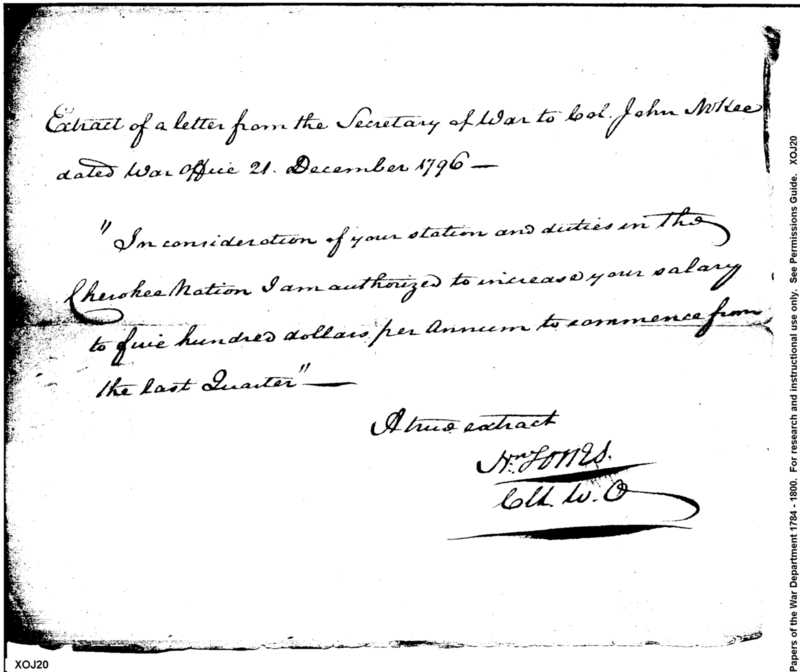 Extract of a letter from the Secretary of War to Col. John McKee
dated War Office 21. December 1796 —
"In consideration of your station and duties in the
Cherokee Nation I am authorized to increase your salary
to five hundred dollars per Annum to commence from
the last Quarter" —
A true extract
Wm Jones.
Clk. W. O
XOJ20
Papers of the War Department 1784 - 1800. For research and instructional use only. See Permissions Guide. XOJ20